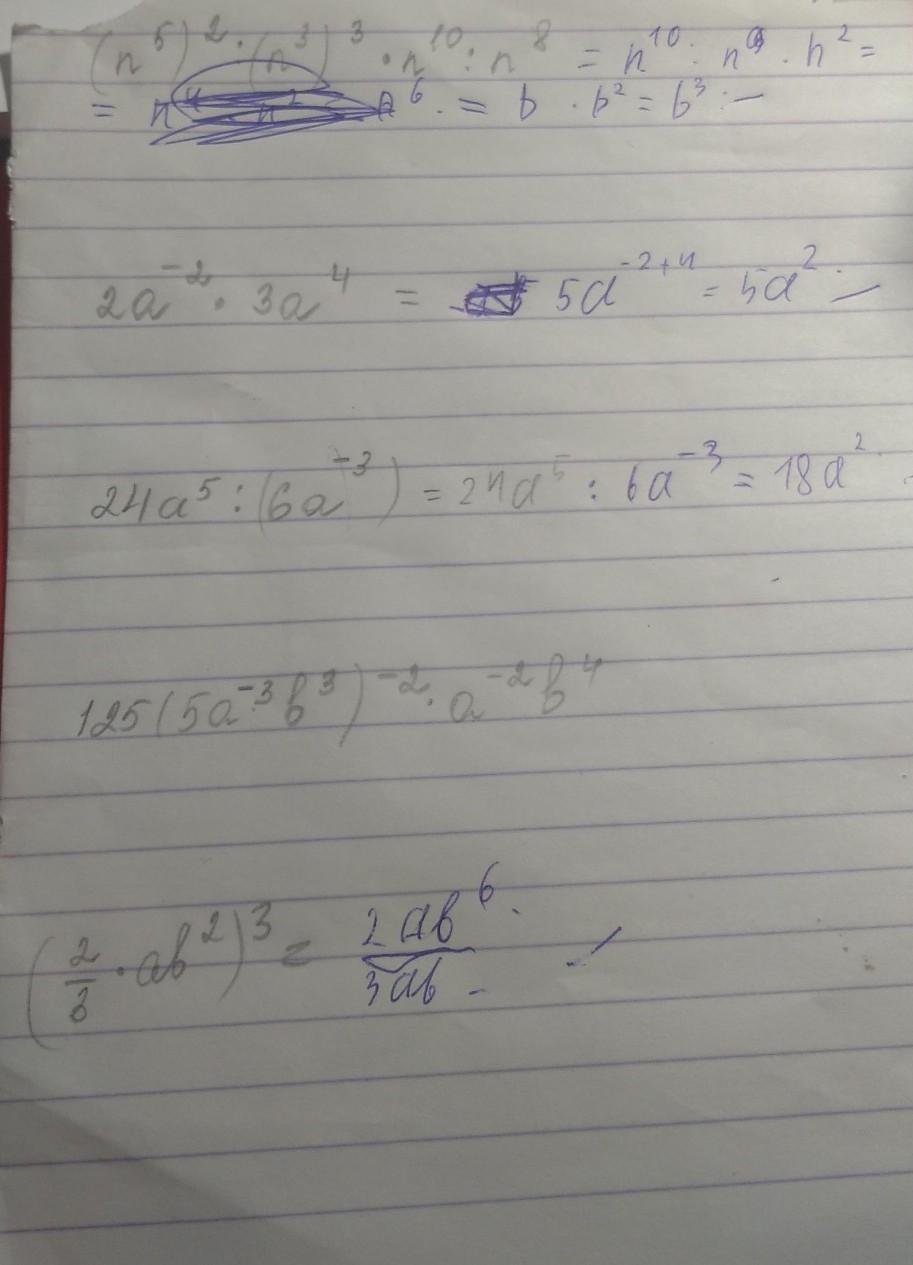 (n⁵)² · (n³)³ · n¹⁰ : n⁸ = n¹⁰ : n⁹ · n² =
= n⁶ · = b · b² = b³ : —
2a⁻² · 3a⁴ = 5a⁻²⁺⁴ = 5a² · —
24a⁵ : (6a⁻³) = 24a⁵ : 6a⁻³ = 18a² ·
125(5a⁻³b³)⁻² · a⁻²b⁴
(2/3 · ab²)³ = 2ab⁶/3ab